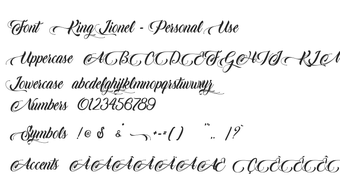 Font King Lionel - Personal Use
Uppercase ABCCDEFGHIJKLM
Lowercase abcdefghijklmnopqrstuvwxyz
Numbers 0123456789
Symbols / @ $ & - _ + - = ( ) " " . , | ?
Accents ÀÁÂÃÄÅÆ ÇÈÉÊË